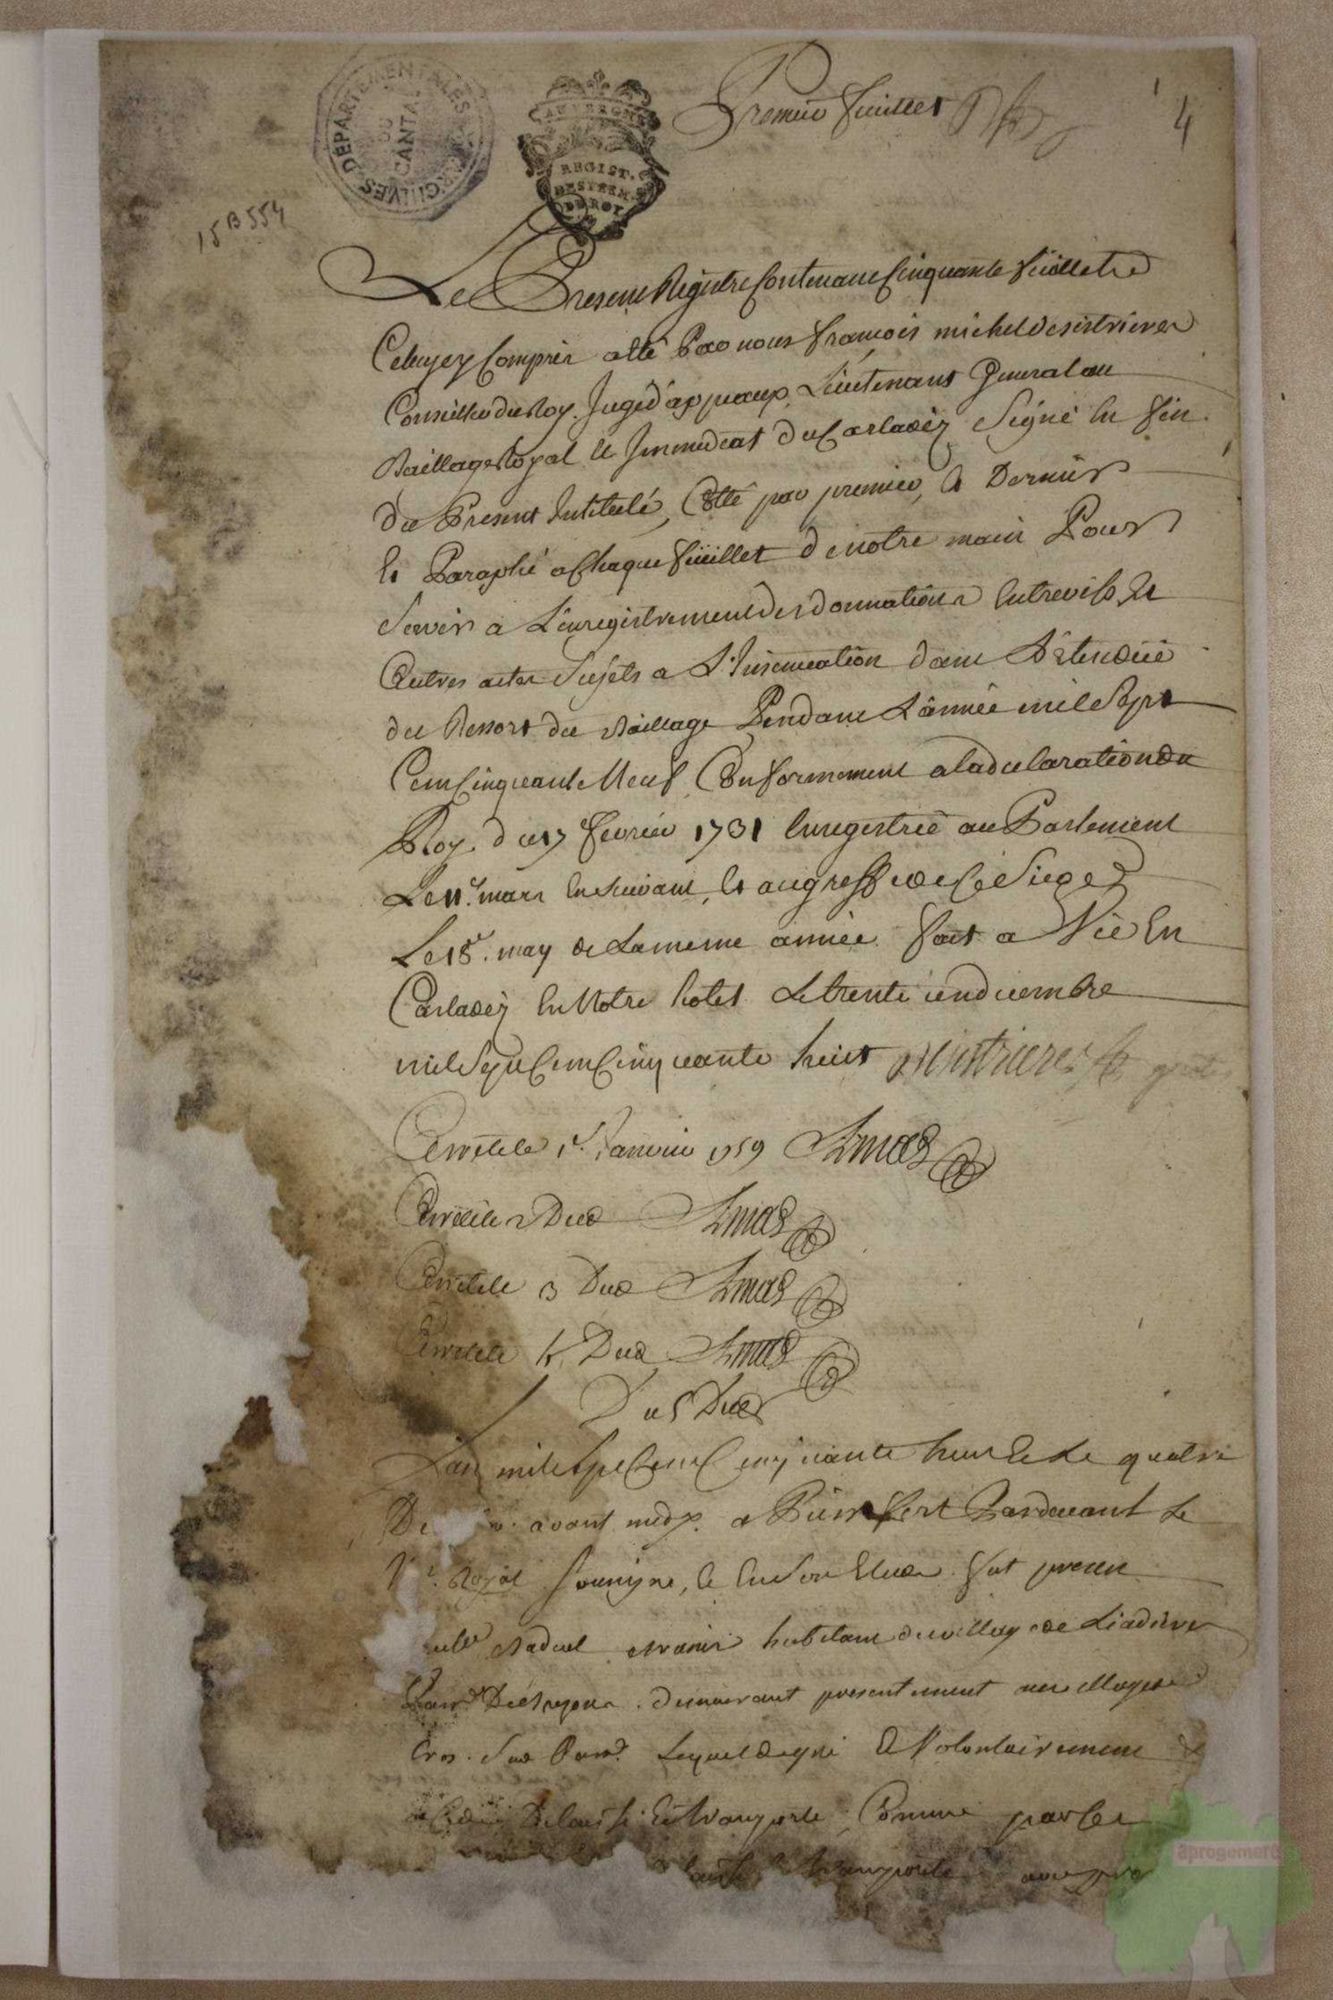 ARCHIVES DÉPARTEMENTALES
DU
CANTAL
REGIST.
DE ROY
Premier feuillet
4
15 B 554
Le Present Registre Contenant Cinquante feuillets
Celuy cy Compris a été Par nous françois michel desistrieres
Conseiller du Roy, Juge d'appeaux, Lieutenant General au
Baillage Royal et Immediat du Carladéz Signé en fin
du Present Intitulé, Cotté par premier, et Dernier
et Paraphé a Chaque feuillet de notre main Pour
Servir a L'enregistrement des donnations Entrevifs, et
Autres actes Sujets a L'Insinuation dans L'étendüe
du Ressort du Baillage Pendant L'année mil Sept
Cent Cinquante Neuf, Conformement a la declaration du
Roy. du 17 fevrier 1731 Enregistrée au Parlement
Le 11e. mars Ensuivant, et au greffe de Ce Siege
Le 18e. may de La meme année. fait a Vic En
Carladéz En Notre hotel Le trente un decembre
mil Sept Cent Cinquante huit Desistrieres
Arrêté le 1er. Janvier 1759
Arrêté le 2 Dud
Arrêté le 3 Dud
Arrêté le 4 Dud
Du 5 Dud
L'an mil Sept Cent Cinquante huit Et Le quatre
avant midy. a Pierrefort Pardevant Le
Royal Soussigné, Et fut present
habitant du village de Liadieres
demeurant presentement
Lequel de gré Et Volontairement
Delaissé Et transporte, Comme par Ces
transporte
aprogemere